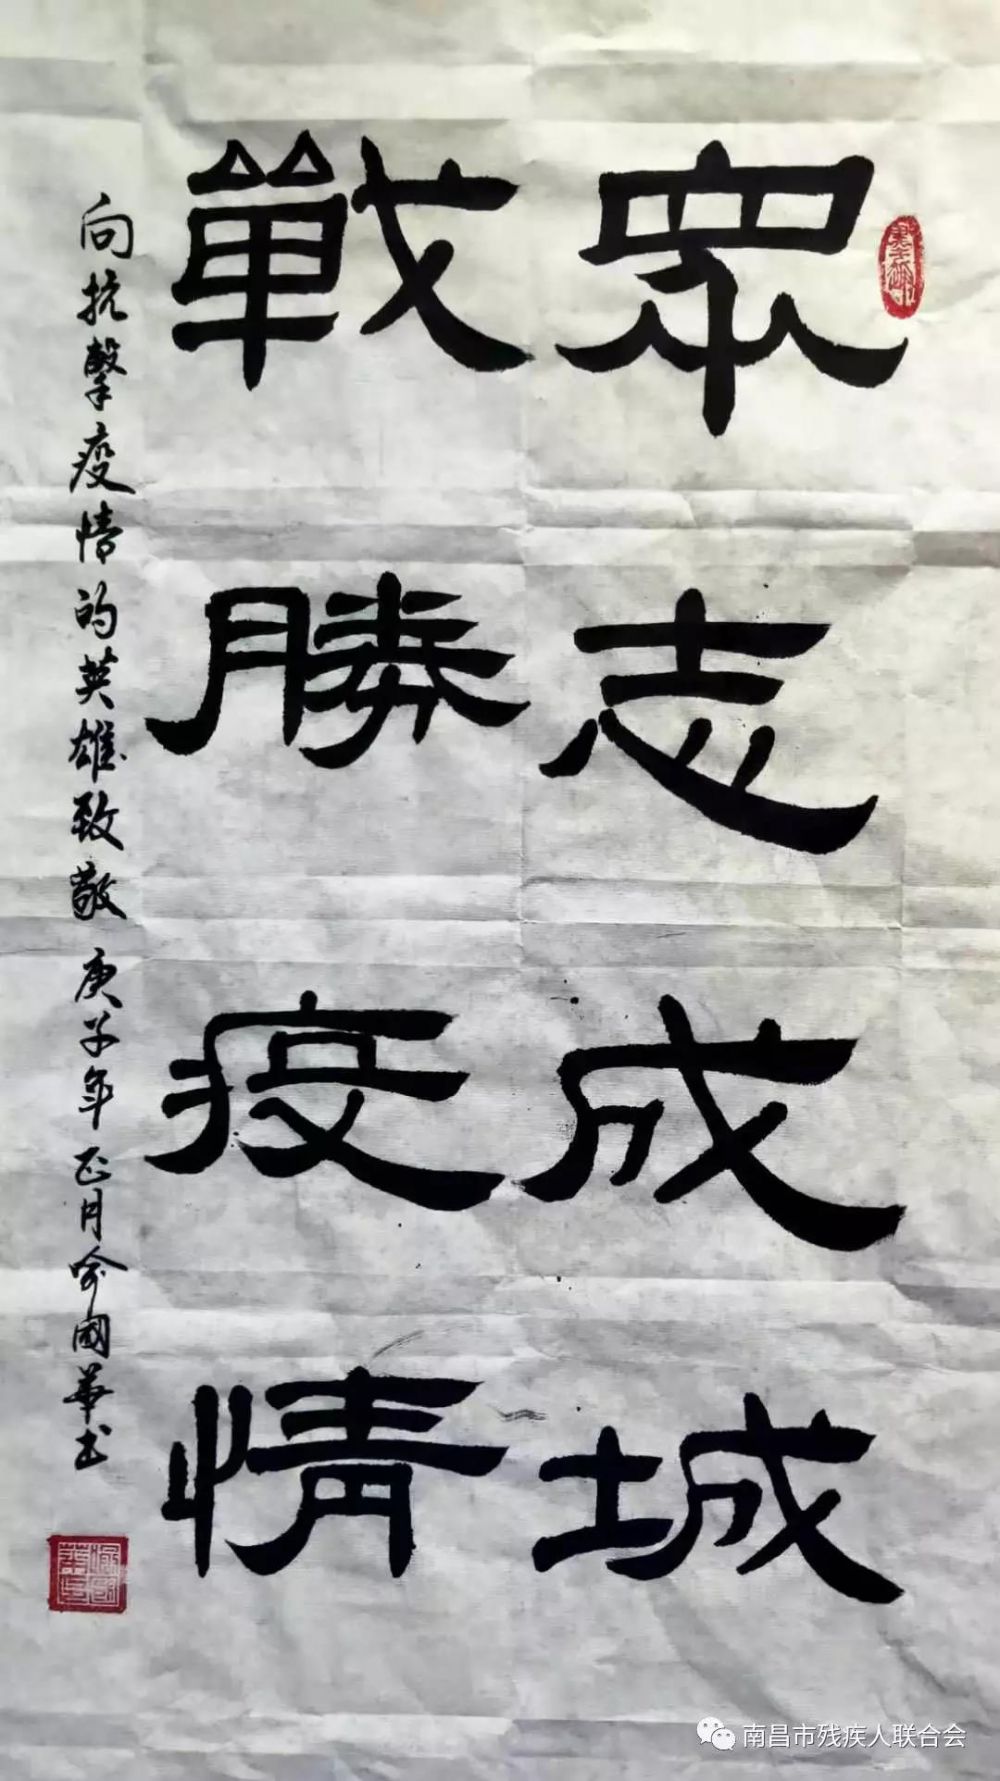 眾志成城
戰勝疫情
向抗擊疫情的英雄致敬 庚子年正月俞國華书
南昌市残疾人联合会